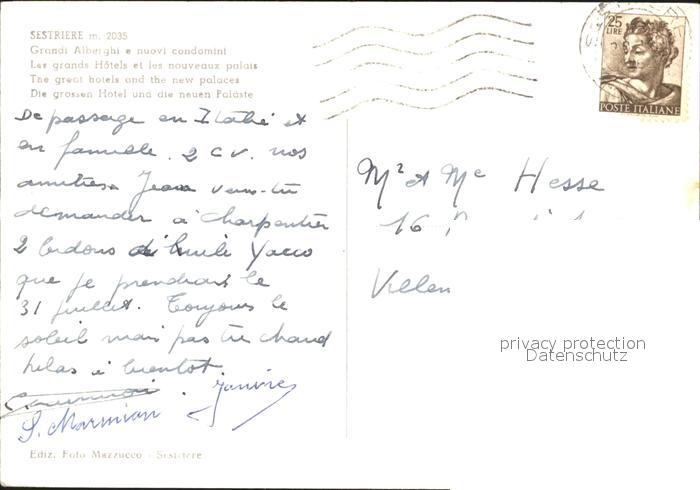 SESTRIERE m. 2035
Grandi Alberghi e nuovi condomini
Les grands Hôtels et les nouveaux palais
The great hotels and the new palaces
Die grossen Hotel und die neuen Paläste
De passage en Italie et
en famille. 2 CV. nos
amitiés. Jean veux-tu
demander à Charpentier
2 bidons d'huile Yacco
que je prendrai le
31 juillet. Toujours le
soleil mais pas très chaud
hélas à bientôt.
S. Marmian
Ediz. Foto Mazzucco - Sestriere
25
LIRE
POSTE ITALIANE
Mr et Me Hesse
16,
Villen
privacy protection
Datenschutz